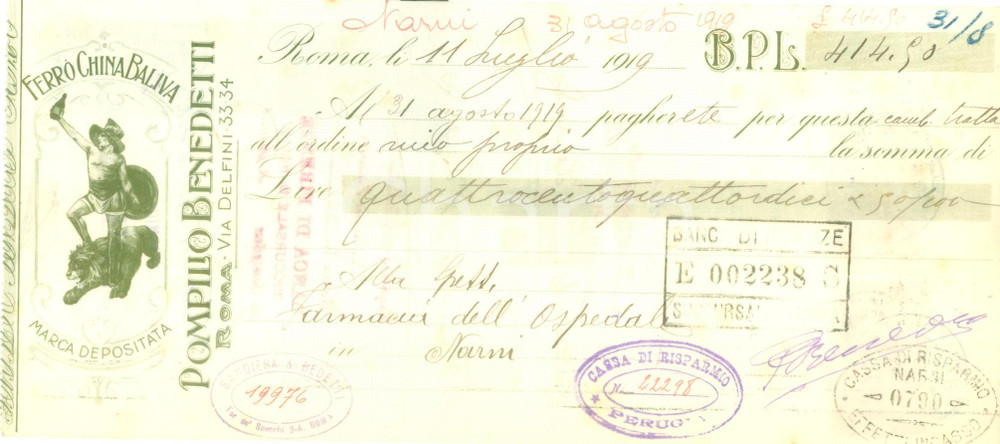 Narni 31 agosto 1919 £ 414.50 31/8
FERRO CHINA BALIVA
MARCA DEPOSITATA
POMPILIO BENEDETTI
ROMA - VIA DELFINI 33 34
Roma, li 11 Luglio 1919 B.P.L. 414.50
Al 31 agosto 1919 pagherete per questa camb. tratta
all'ordine mio proprio la somma di
Lire quattrocentoquattordici e 50/00
BANC DI ZE
E 002238 S
Alla Spett.
Farmacia dell'Ospedale
in Narni
19976
CASSA DI RISPARMIO
No. 22298
PERUGIA
CASSA DI RISPARMIO
NARNI
0790
EFFETTI INCASSO